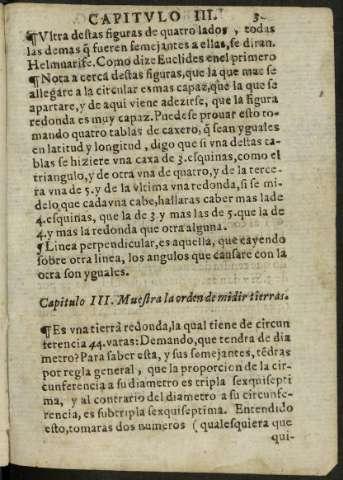 CAPITVLO III. 3
¶Vltra destas figuras de quatro lados, todas
las demas q̃ fueren semejantes a ellas, se diran.
Helmuarife. Como dize Euclides en el primero
¶Nota a cerca destas figuras, que la que mas se
allegàre a la circular es mas capaz, que la que se
apartare, y de aqui viene a dezirse, que la figura
redonda es muy capaz. Puedese prouar esto to-
mando quatro tablas de caxero, q̃ sean yguales
en latitud y longitud, digo que si vna destas ta-
blas se hiziere vna caxa de 3. esquinas, como el
triangulo, y de otra vna de quatro, y de la terce-
ra vna de 5. y de la vltima vna redonda, si se mi-
de lo que cada vna cabe, hallaras caber mas la de
4. esquinas, que la de 3 y mas la s de 5. que la de
4. y mas la redonda que otra alguna.
¶ Linea perpendicular, es aquella, que cayendo
sobre otra linea, los angulos que causare con la
otra son yguales.
Capitulo III. Muestra la orden de midir tierras.
¶Es vna tierra redonda, la qual tiene de circun
ferencia 44. varas: Demando, que tendra de dia
metro? Para saber esta, y sus semejantes, tẽdras
por regla general, que la proporcion de la cir-
cunferencia a su diametro es tripla sexquisepti
ma, y al contrario del diametro a su circunfe-
rencia, es subtripla sexquiseptima. Entendido
esto, tomaras dos numeros (qualesquiera que
qui-